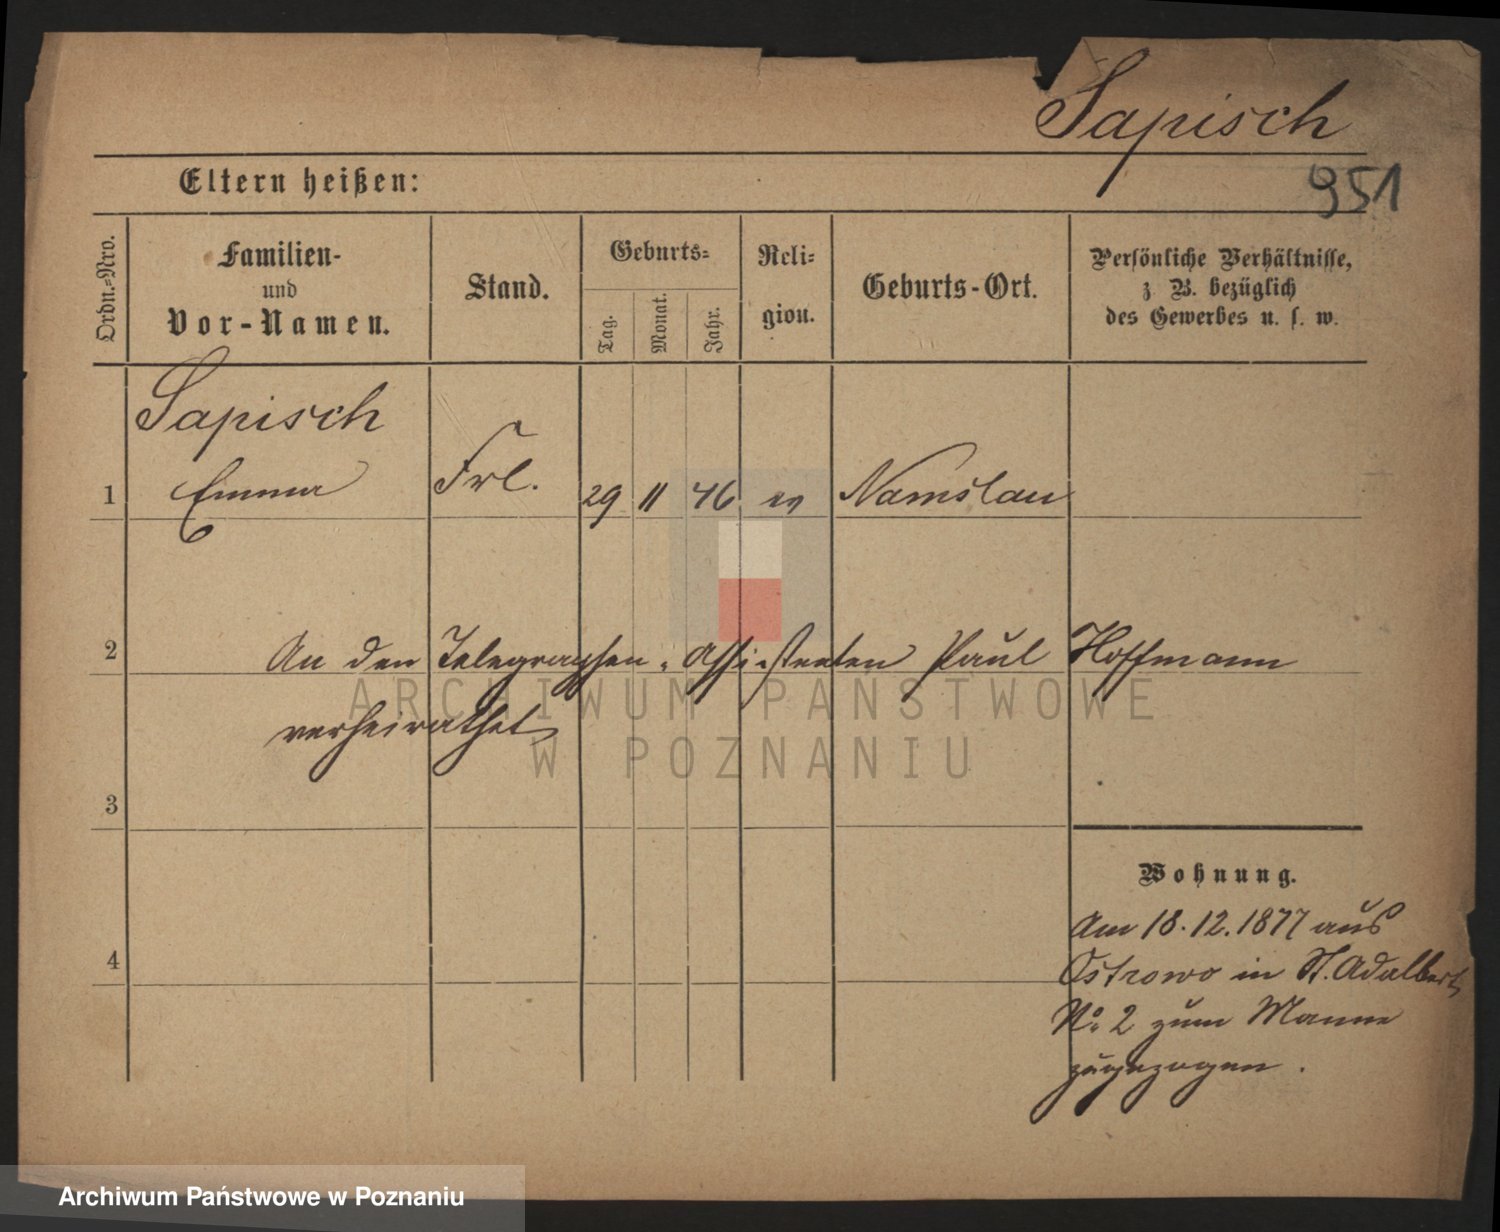 Sapisch
951
Eltern heißen:
Ordn.-Nro.
Familien-
und
Vor-Namen.
Stand.
Geburts-
Tag.
Monat.
Jahr.
Reli-
gion.
Geburts-Ort.
Persönliche Verhältnisse,
z B. bezüglich
des Gewerbes u. s. w.
Sapisch
1 Emma Frl. 29 11 46 ev Namslau
2 An den Telegraphen-Assistenten Paul Hoffmann
verheirathet
3
Wohnung.
Am 18.12.1877 aus
Ostrowo in St. Adalbert
No. 2 zum Manne
zugezogen.
4
ARCHIWUM PAŃSTWOWE
W POZNANIU
Archiwum Państwowe w Poznaniu